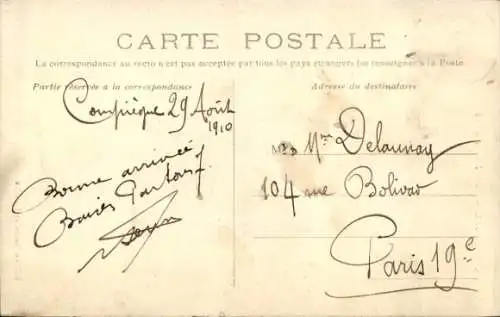 CARTE POSTALE
La correspondance au recto n'est pas acceptée par tous les pays étrangers (se renseigner à la Poste
Partie réservée a la correspondance
Adresse du destinataire
Compiègne 29 Août
1910
Bonne arrivée
Baisers Partout
Mme Delaunay
104 rue Bolivar
Paris 19e